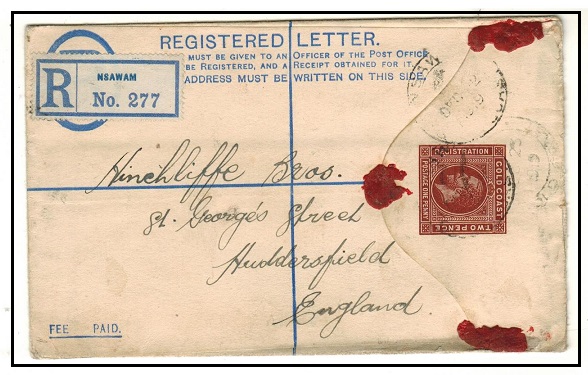 REGISTERED LETTER.
MUST BE GIVEN TO AN OFFICER OF THE POST OFFICE
BE REGISTERED, AND A RECEIPT OBTAINED FOR IT.
ADDRESS MUST BE WRITTEN ON THIS SIDE
R
NSAWAM
No. 277
Hinchliffe Bros.
St. George's Street
Huddersfield
England.
REGISTRATION
GOLD COAST
POSTAGE
TWO PENCE
FEE PAID.